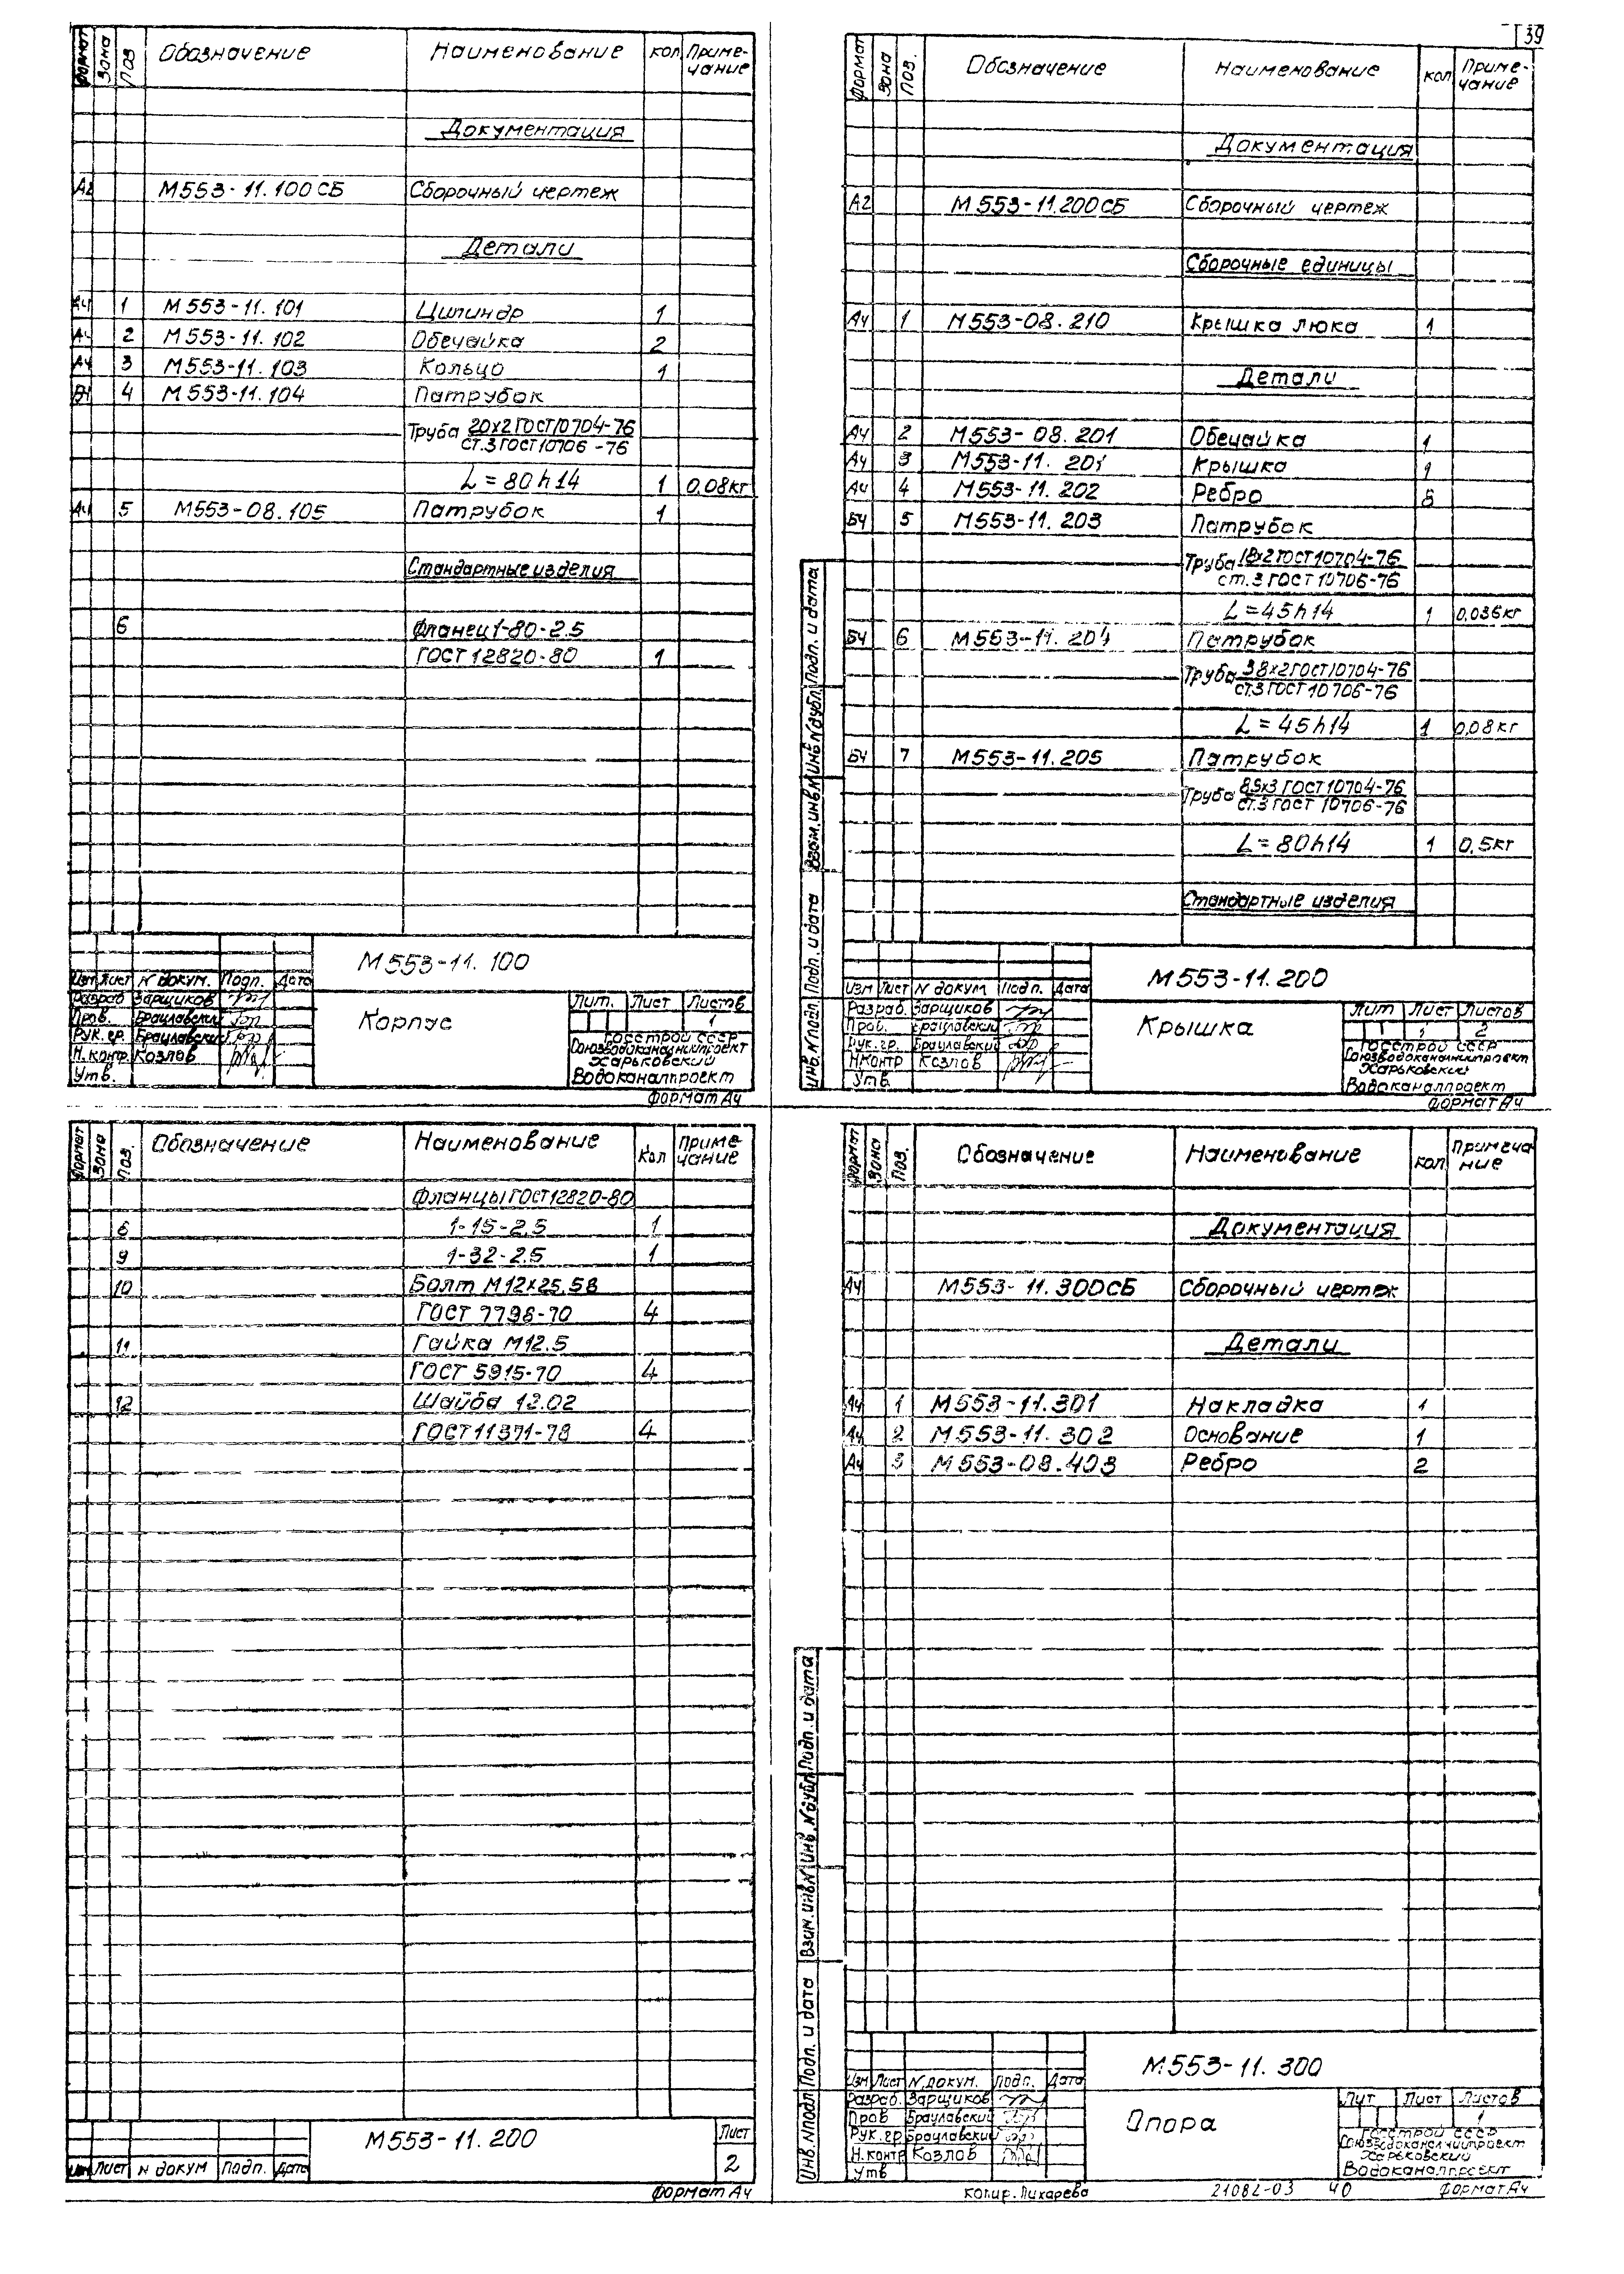 39
Формат Зона Поз Обозначение Наименование кол Приме-чание
Документация
А2 М553-11.100СБ Сборочный чертеж
Детали
А4 1 М553-11.101 Цилиндр 1
А4 2 М553-11.102 Обечайка 2
А4 3 М553-11.103 Кольцо 1
БЧ 4 М553-11.104 Патрубок
Труба 20х2 ГОСТ 10704-76
ст.3 ГОСТ 10706-76
L=80h14 1 0,08кг
А4 5 М553-08.105 Патрубок 1
Стандартные изделия
6 Фланец 1-80-2.5
ГОСТ 12820-80 1
М553-11.100
Изм Лист N докум. Подп. Дата
Разраб Зарщиков
Пров. Браулавский
Рук.гр. Браулавский
Н.контр. Козлов
Утв.
Корпус
Лит. Лист Листов
1
Госстрой СССР
Союзводоканалниипроект
Харьковский
Водоканалпроект
Формат А4
Формат Зона Поз. Обозначение Наименование кол Приме-чание
Документация
А2 М553-11.200СБ Сборочный чертеж
Сборочные единицы
А4 1 М553-08.210 Крышка люка 1
Детали
А4 2 М553-08.201 Обечайка 1
А4 3 М553-11.201 Крышка 1
А4 4 М553-11.202 Ребро
БЧ 5 М553-11.203 Патрубок
Труба 18х2 ГОСТ 10704-76
ст.3 ГОСТ 10706-76
L=45h14 1 0,036кг
БЧ 6 М553-11.204 Патрубок
Труба 38х2 ГОСТ 10704-76
ст.3 ГОСТ 10706-76
L=45h14 1 0,08кг
БЧ 7 М553-11.205 Патрубок
Труба 89х3 ГОСТ 10704-76
ст.3 ГОСТ 10706-76
L=80h14 1 0,5кг
Стандартные изделия
Инв.N подл. Подп. и дата Взам.инв.N Инв.N дубл. Подп. и дата
М553-11.200
Изм Лист N докум Подп. Дата
Разраб. Зарщиков
Пров. Браулавский
Рук.гр. Браулавский
Н.контр Козлов
Утв.
Крышка
Лит Лист Листов
1 2
Госстрой СССР
Союзводоканалниипроект
Харьковский
Водоканалпроект
Формат А4
Формат Зона Поз. Обозначение Наименование Кол Приме-чание
Фланцы ГОСТ 12820-80
8 1-15-2.5 1
9 1-32-2.5 1
10 Болт М12х25.58
ГОСТ 7798-70 4
11 Гайка М12.5
ГОСТ 5915-70 4
12 Шайба 12.02
ГОСТ 11371-78 4
М553-11.200
Лист
2
Изм Лист N докум Подп. Дата
Формат А4
Формат Зона Поз. Обозначение Наименование кол Примеча-ние
Документация
А4 М553-11.300СБ Сборочный чертеж
Детали
А4 1 М553-11.301 Накладка 1
А4 2 М553-11.302 Основание 1
А4 3 М553-08.403 Ребро 2
Инв.N подл Подп. и дата Взам.инв.N Инв.N дубл. Подп. и дата
М553-11.300
Изм Лист N докум. Подп. Дата
Разраб. Зарщиков
Пров Браулавский
Рук.гр Браулавский
Н.контр Козлов
Утв
Опора
Лит Лист Листов
1
Госстрой СССР
Союзводоканалниипроект
Харьковский
Водоканалпроект
копир. Пихарева 21082-03 40 Формат А4